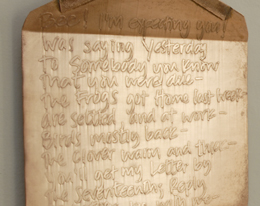 Bee! I'm expecting you!
was saying Yesterday
To Somebody you know
That you were due—
The Frogs got Home last Week—
are settled and at work—
Birds mostly back—
The Clover warm and thick—
You'll get my Letter by
The Seventeenth; Reply